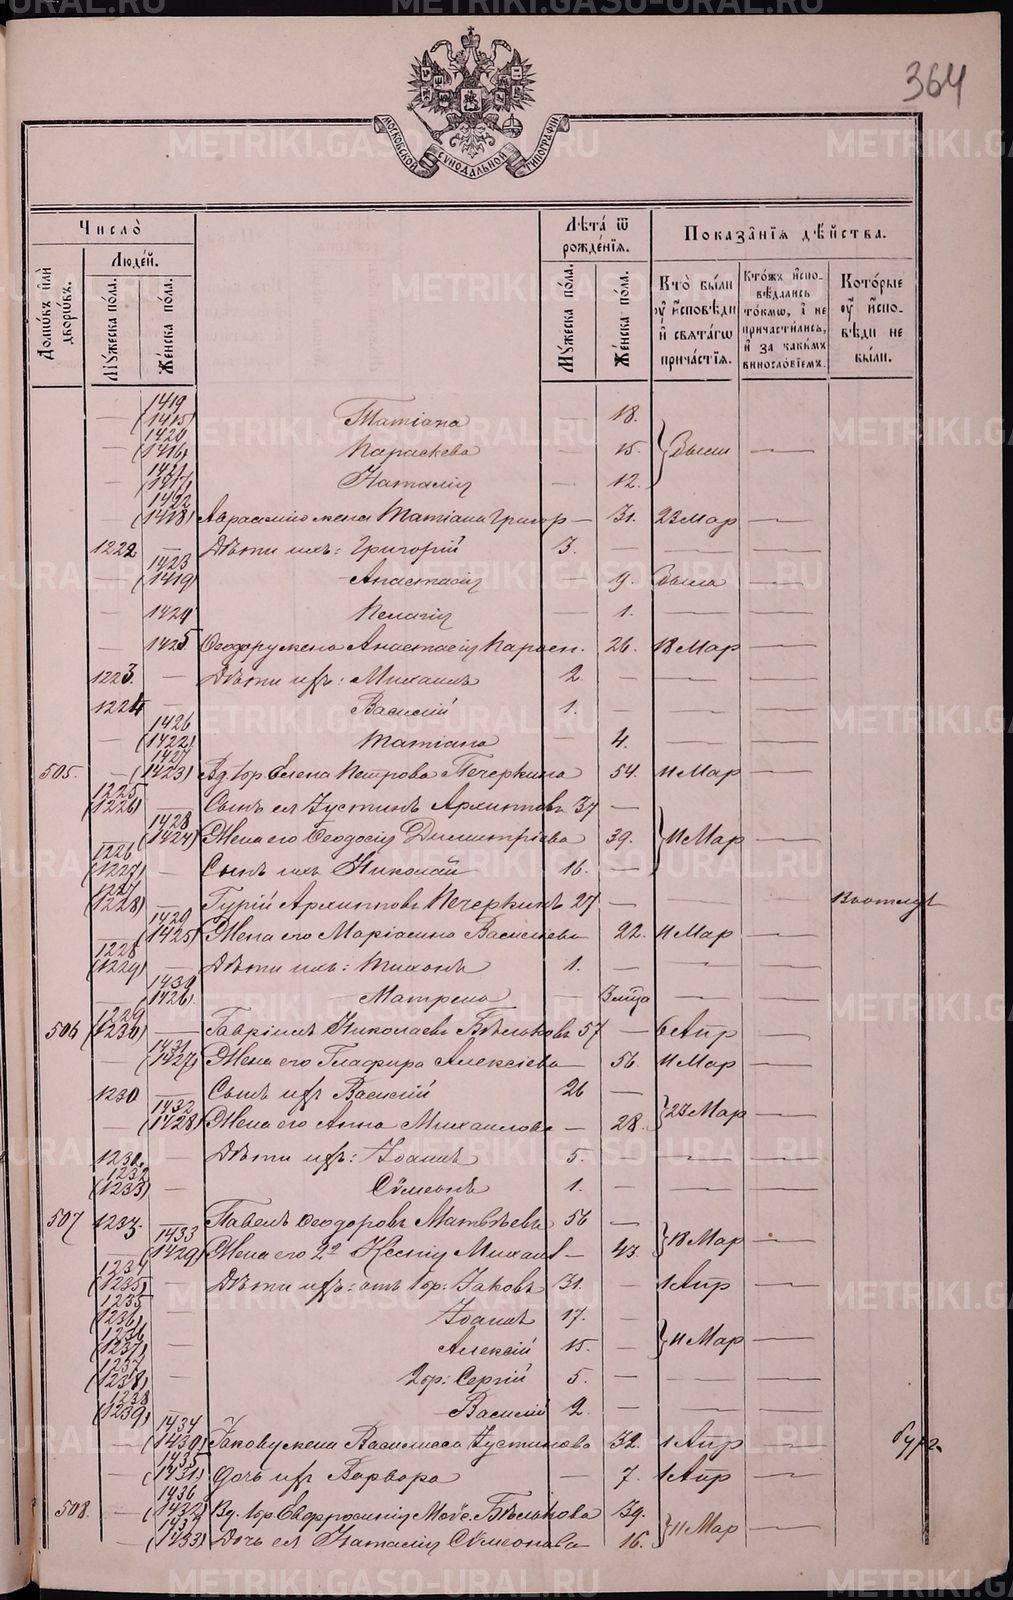 364
МОСКОВСКОЙ СУНОДАЛЬНОЙ ТИПОГРАФІИ
Число̀
Лѣта́ ѿ рожде́нїѧ.
Показа̑нїѧ дѣ́йства.
Домѡ́въ и҆лѝ дворѡ́въ.
Люде́й.
Мꙋ́жеска по́ла.
Же́нска по́ла.
Мꙋ́жеска по́ла.
Же́нска по́ла.
Кто̀ бы́ли ᲂу҆ и҆сповѣ́ди и҆ свѧта́гѡ прича́стїѧ.
Кто́жъ и҆сповѣ́дались то́кмѡ, а҆ не причасти́лись, и҆ за каки́мъ виносло́вїемъ.
Кото́рые ᲂу҆ и҆сповѣ́ди не бы́ли.
— 1419 (1415) Татіана — 18.
— 1420 (1416) Параскева — 15. } Были —
— 1421 (1417) Наталія — 12.
— 1422 (1418) Аврамію жена Татіана Григор — 31. 23 Мар —
1222 — Дѣти ихъ: Григорій 3. — — —
1423 (1419) Анастасія — 9. Была —
— 1424 Пелагія — 1. — —
— 1425 Ѳеодору жена Анастасія — 26. 18 Мар —
1223. — Дѣти ихъ: Михаилъ 2. — — —
1224 — Василій 1. — — —
1426 (1422) Татіана — 4. — —
505. — 1427 (1423) Вд. Елена Петрова Печеркина 54. 11 Мар —
1225 (1226) — Сынъ ея Іустинъ Архиповъ 37 —
1428 (1424) Жена его Ѳеодосія Димитріева 39. } 11 Мар —
1226 (1227) — Сынъ ихъ Николай 16. —
1227 (1228) — Гурій Архиповъ Печеркинъ 27 — — —
— 1429 (1425) Жена его Маріамна Васильева 22. 11 Мар —
1228 (1229) — Дѣти ихъ: Тихонъ 1. — — —
— 1430 (1426) Матрена — — —
506 1229 (1230) — Гавріилъ Николаевъ Бѣльковъ 57 — 6 Апр —
— 1431 (1427) Жена его Глафира Алексіева — 56. 11 Мар —
1230 — Сынъ ихъ Василій 26 —
— 1432 (1428) Жена его Анна Михаилова — 28. } 23 Мар —
— Дѣти ихъ: Іоаннъ 5. — — —
1232 (1233) — Сѵмеонъ 1. — — —
507 1233. — Павелъ Ѳеодоровъ Матвѣевъ 56 —
— 1433 (1429) Жена его 2я Ксенія Михаил — 43. } 18 Мар —
1234 (1235) — Дѣти ихъ: отъ 1 бр: Іаковъ 31. — 1 Апр —
1235 (1236) — Іоаннъ 17. —
1236 (1237) — Алексій 15. — } 11 Мар —
1237 (1238) — 2 бр: Сергій 5. — — —
1238 (1239) — Василій 2. — — —
— 1434 (1430) Іакову жена Василисса Іустинова 32. 1 Апр —
— 1435 (1431) Дочь ихъ Варвара — 7. 1 Апр —
508. — 1436 (1432) Вд. Евфросинія Бѣлькова 39.
— 1437 (1433) Дочь ея Наталія Сѵмеонова 16. } 11 Мар —
METRIKI.GASO-URAL.RU